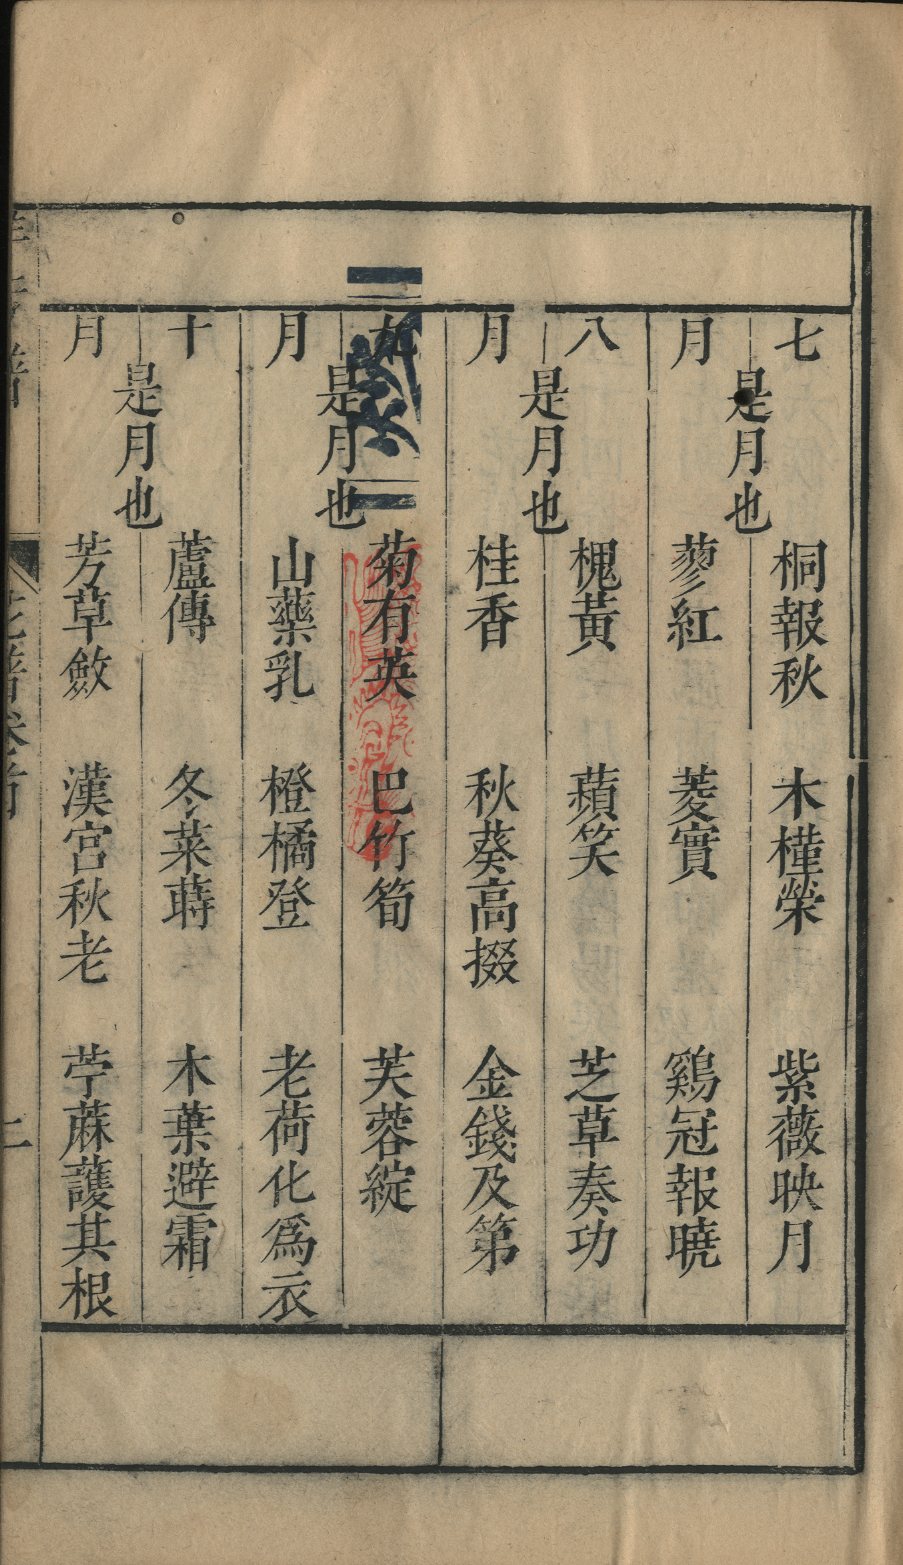 七月
是月也
桐報秋 木槿榮 紫薇映月
蓼紅 菱實 鷄冠報曉
八月
是月也
槐黃 蘋笑 芝草奏功
桂香 秋葵高掇 金錢及第
九月
是月也
菊有英 巴竹筍 芙蓉綻
山藥乳 橙橘登 老荷化爲衣
十月
是月也
蘆傳 冬菜蒔 木葉避霜
芳草斂 漢宮秋老 苧蔴護其根